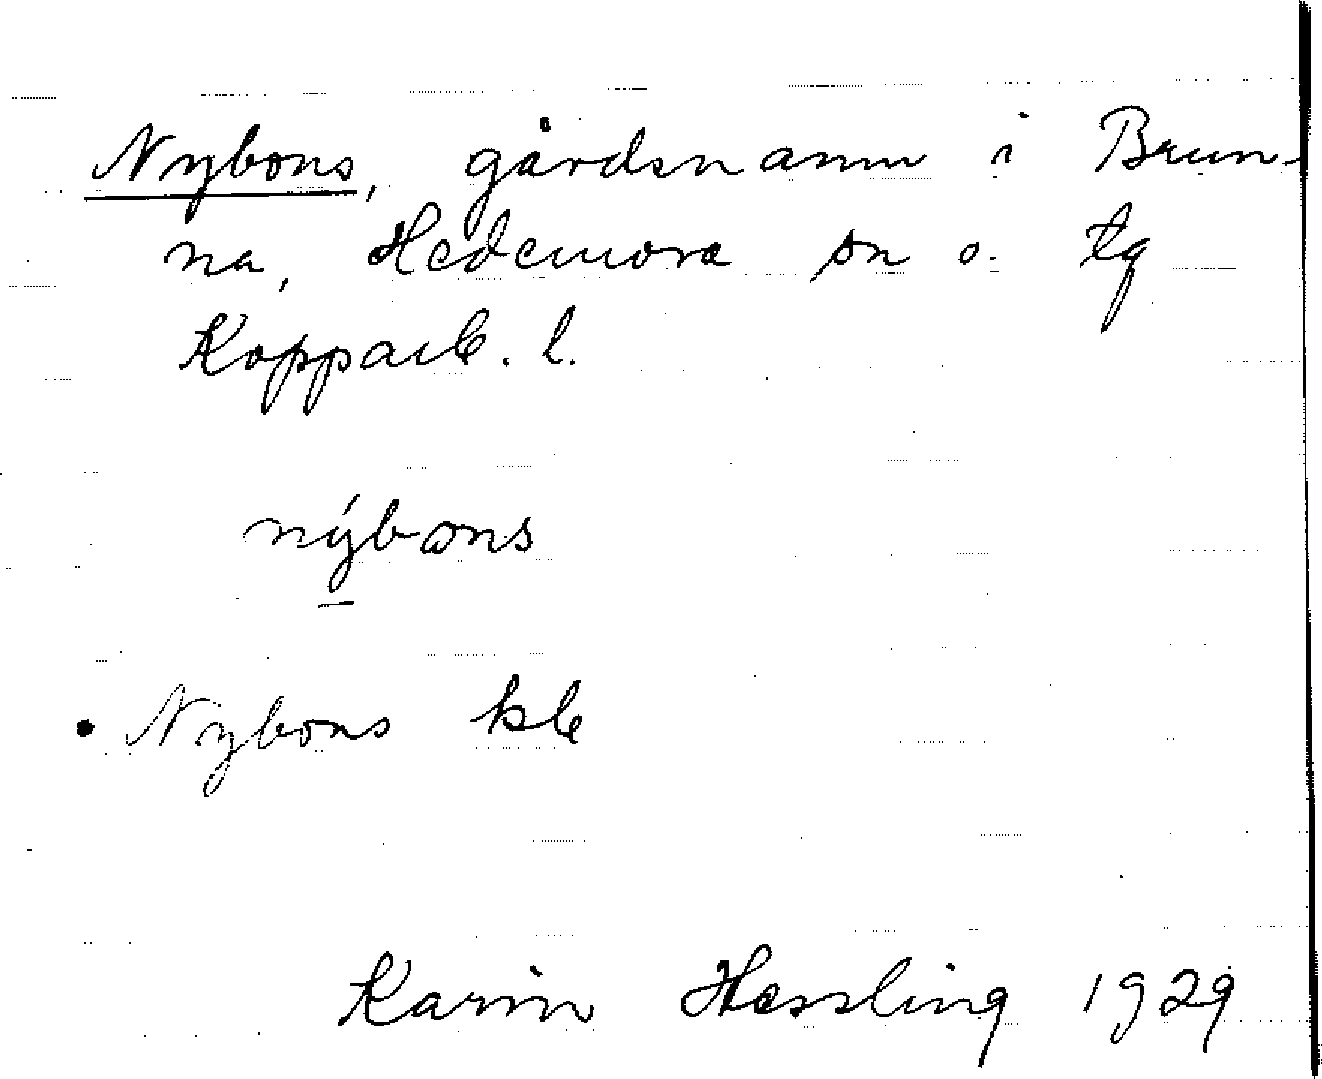 Nybons, gårdsnamn i Brun-
na, Hedemora sn o. tg
Kopparb. l.
nýbons
• Nybons kb
Karin Hessling 1929